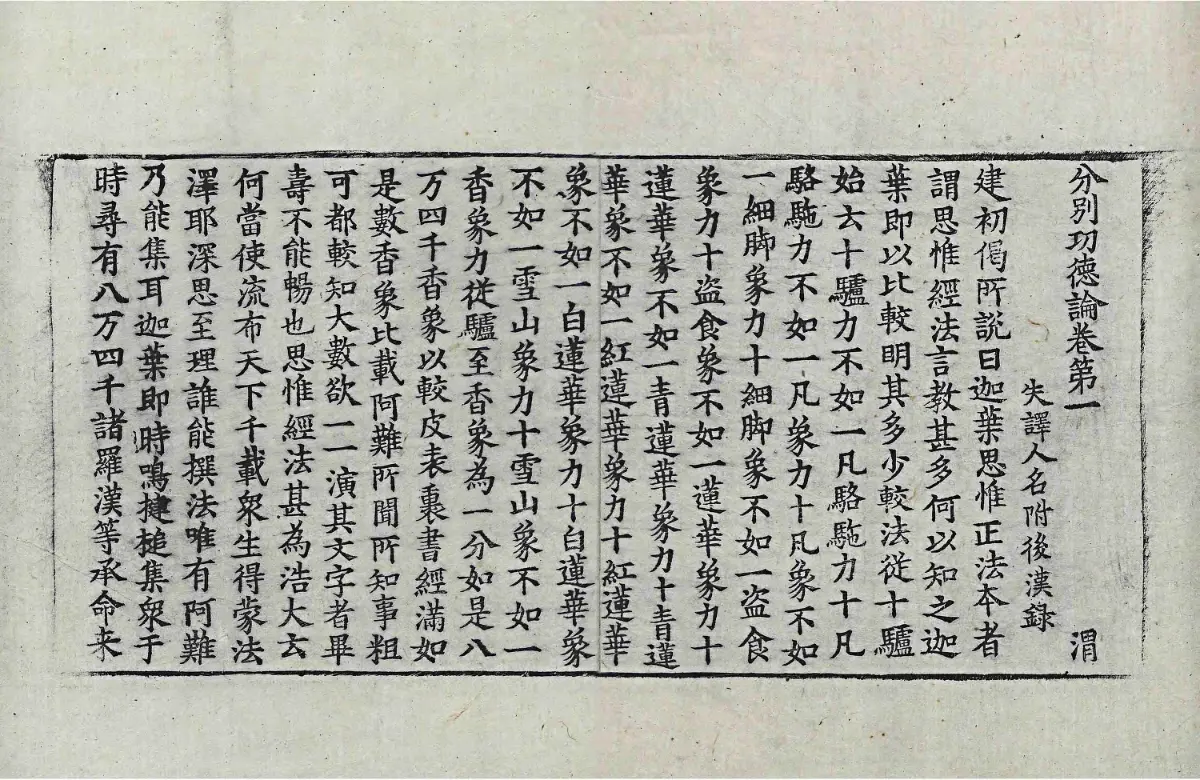 分別功德論卷第一 渭
失譯人名附後漢錄
建初偈所說曰迦葉思惟正法本者
謂思惟經法言教甚多何以知之迦
葉即以比較明其多少較法従十驢
始去十驢力不如一凡駱駞力十凡
駱駞力不如一凡象力十凡象不如
一細脚象力十細脚象不如一盜食
象力十盜食象不如一蓮華象力十
蓮華象不如一青蓮華象力十青蓮
華象不如一紅蓮華象力十紅蓮華
象不如一白蓮華象力十白蓮華象
不如一雪山象力十雪山象不如一
香象力従驢至香象為一分如是八
万四千香象以較皮表裏書經滿如
是數香象比載阿難所聞所知事粗
可都較知大數欲一一演其文字者畢
壽不能暢也思惟經法甚為浩大去
何當使流布天下千載衆生得蒙法
澤耶深思至理誰能撰法唯有阿難
乃能集耳迦葉即時鳴揵槌集衆于
時尋有八万四千諸羅漢等承命来